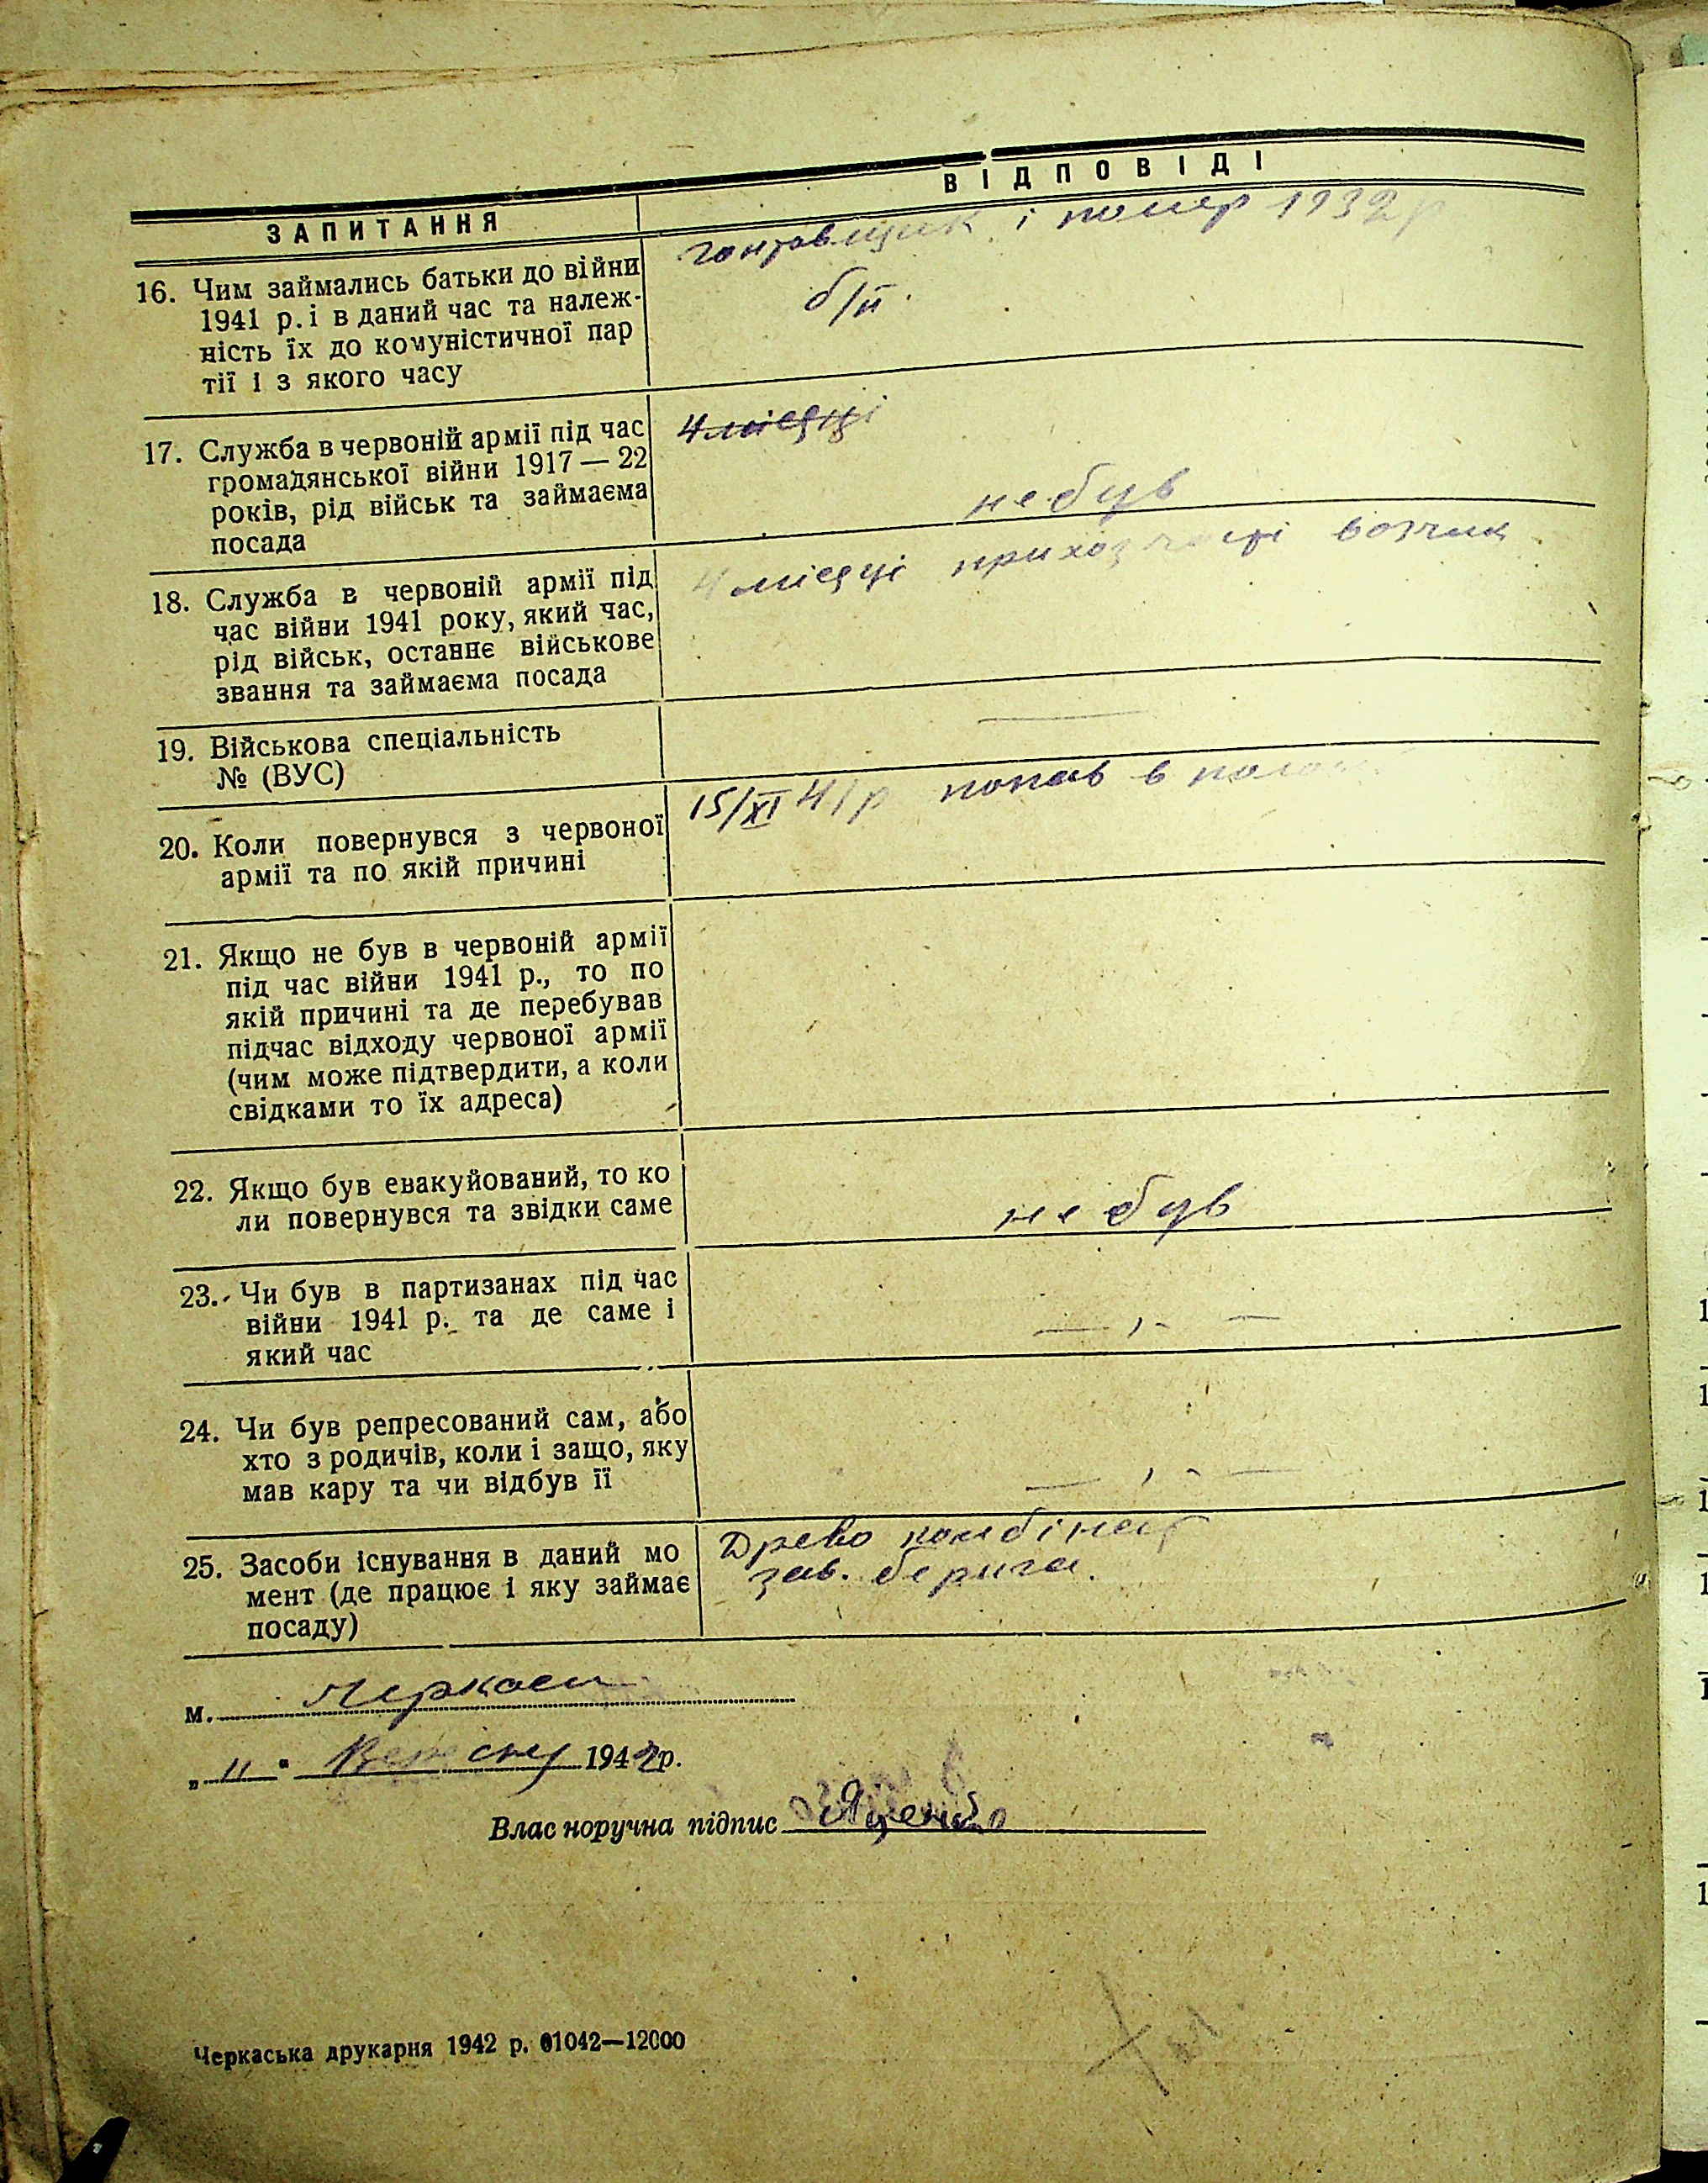 ЗАПИТАННЯ
ВІДПОВІДІ
16. Чим займались батьки до війни
1941 р. і в даний час та належ-
ність їх до комуністичної пар
тії і з якого часу
гонтовщик і помер 1932 р
б/п.
17. Служба в червоній армії під час
громадянської війни 1917 — 22
років, рід військ та займаєма
посада
4 місяці
не був
18. Служба в червоній армії під
час війни 1941 року, який час,
рід військ, останнє військове
звання та займаєма посада
4 місяці при возчик
19. Військова спеціальність
№ (ВУС)
—
20. Коли повернувся з червоної
армії та по якій причині
15/XI 41 р попав в полон
21. Якщо не був в червоній армії
під час війни 1941 р., то по
якій причині та де перебував
підчас відходу червоної армії
(чим може підтвердити, а коли
свідками то їх адреса)
22. Якщо був евакуйований, то ко
ли повернувся та звідки саме
не був
23. Чи був в партизанах під час
війни 1941 р. та де саме і
який час
— , - —
24. Чи був репресований сам, або
хто з родичів, коли і защо, яку
мав кару та чи відбув її
— , - —
25. Засоби існування в даний мо
мент (де працює і яку займає
посаду)
Древо комбінат
зав.
м. Черкаси
„ 11 " Вересня 1942 р.
Власноручна підпис Яценко
Черкаська друкарня 1942 р. 01042—12000